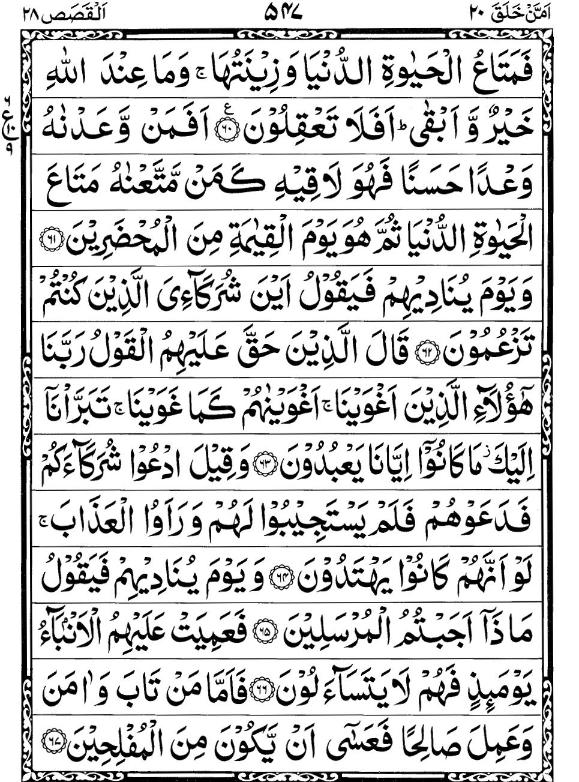 اَمَّنْ خَلَقَ ٢٠ ۵۴۷ اَلْقَصَص ٢٨
فَمَتَاعُ الْحَيٰوةِ الدُّنْيَا وَزِيْنَتُهَا ۚ وَمَا عِنْدَ اللّٰهِ
خَيْرٌ وَّاَبْقٰى ؕ اَفَلَا تَعْقِلُوْنَ ﴿۶۰﴾ اَفَمَنْ وَّعَدْنٰهُ
وَعْدًا حَسَنًا فَهُوَ لَاقِيْهِ كَمَنْ مَّتَّعْنٰهُ مَتَاعَ
الْحَيٰوةِ الدُّنْيَا ثُمَّ هُوَ يَوْمَ الْقِيٰمَةِ مِنَ الْمُحْضَرِيْنَ ﴿۶۱﴾
وَيَوْمَ يُنَادِيْهِمْ فَيَقُوْلُ اَيْنَ شُرَكَآءِىَ الَّذِيْنَ كُنْتُمْ
تَزْعُمُوْنَ ﴿۶۲﴾ قَالَ الَّذِيْنَ حَقَّ عَلَيْهِمُ الْقَوْلُ رَبَّنَا
هٰٓؤُلَآءِ الَّذِيْنَ اَغْوَيْنَا ۚ اَغْوَيْنٰهُمْ كَمَا غَوَيْنَا ۚ تَبَرَّاْنَاۤ
اِلَيْكَ ؗ مَا كَانُوْۤا اِيَّانَا يَعْبُدُوْنَ ﴿۶۳﴾ وَقِيْلَ ادْعُوْا شُرَكَآءَكُمْ
فَدَعَوْهُمْ فَلَمْ يَسْتَجِيْبُوْا لَهُمْ وَرَاَوُا الْعَذَابَ ۚ
لَوْ اَنَّهُمْ كَانُوْا يَهْتَدُوْنَ ﴿۶۴﴾ وَيَوْمَ يُنَادِيْهِمْ فَيَقُوْلُ
مَاذَاۤ اَجَبْتُمُ الْمُرْسَلِيْنَ ﴿۶۵﴾ فَعَمِيَتْ عَلَيْهِمُ الْاَنْۢبَآءُ
يَوْمَئِذٍ فَهُمْ لَا يَتَسَآءَلُوْنَ ﴿۶۶﴾ فَاَمَّا مَنْ تَابَ وَاٰمَنَ
وَعَمِلَ صَالِحًا فَعَسٰٓى اَنْ يَّكُوْنَ مِنَ الْمُفْلِحِيْنَ ﴿۶۷﴾